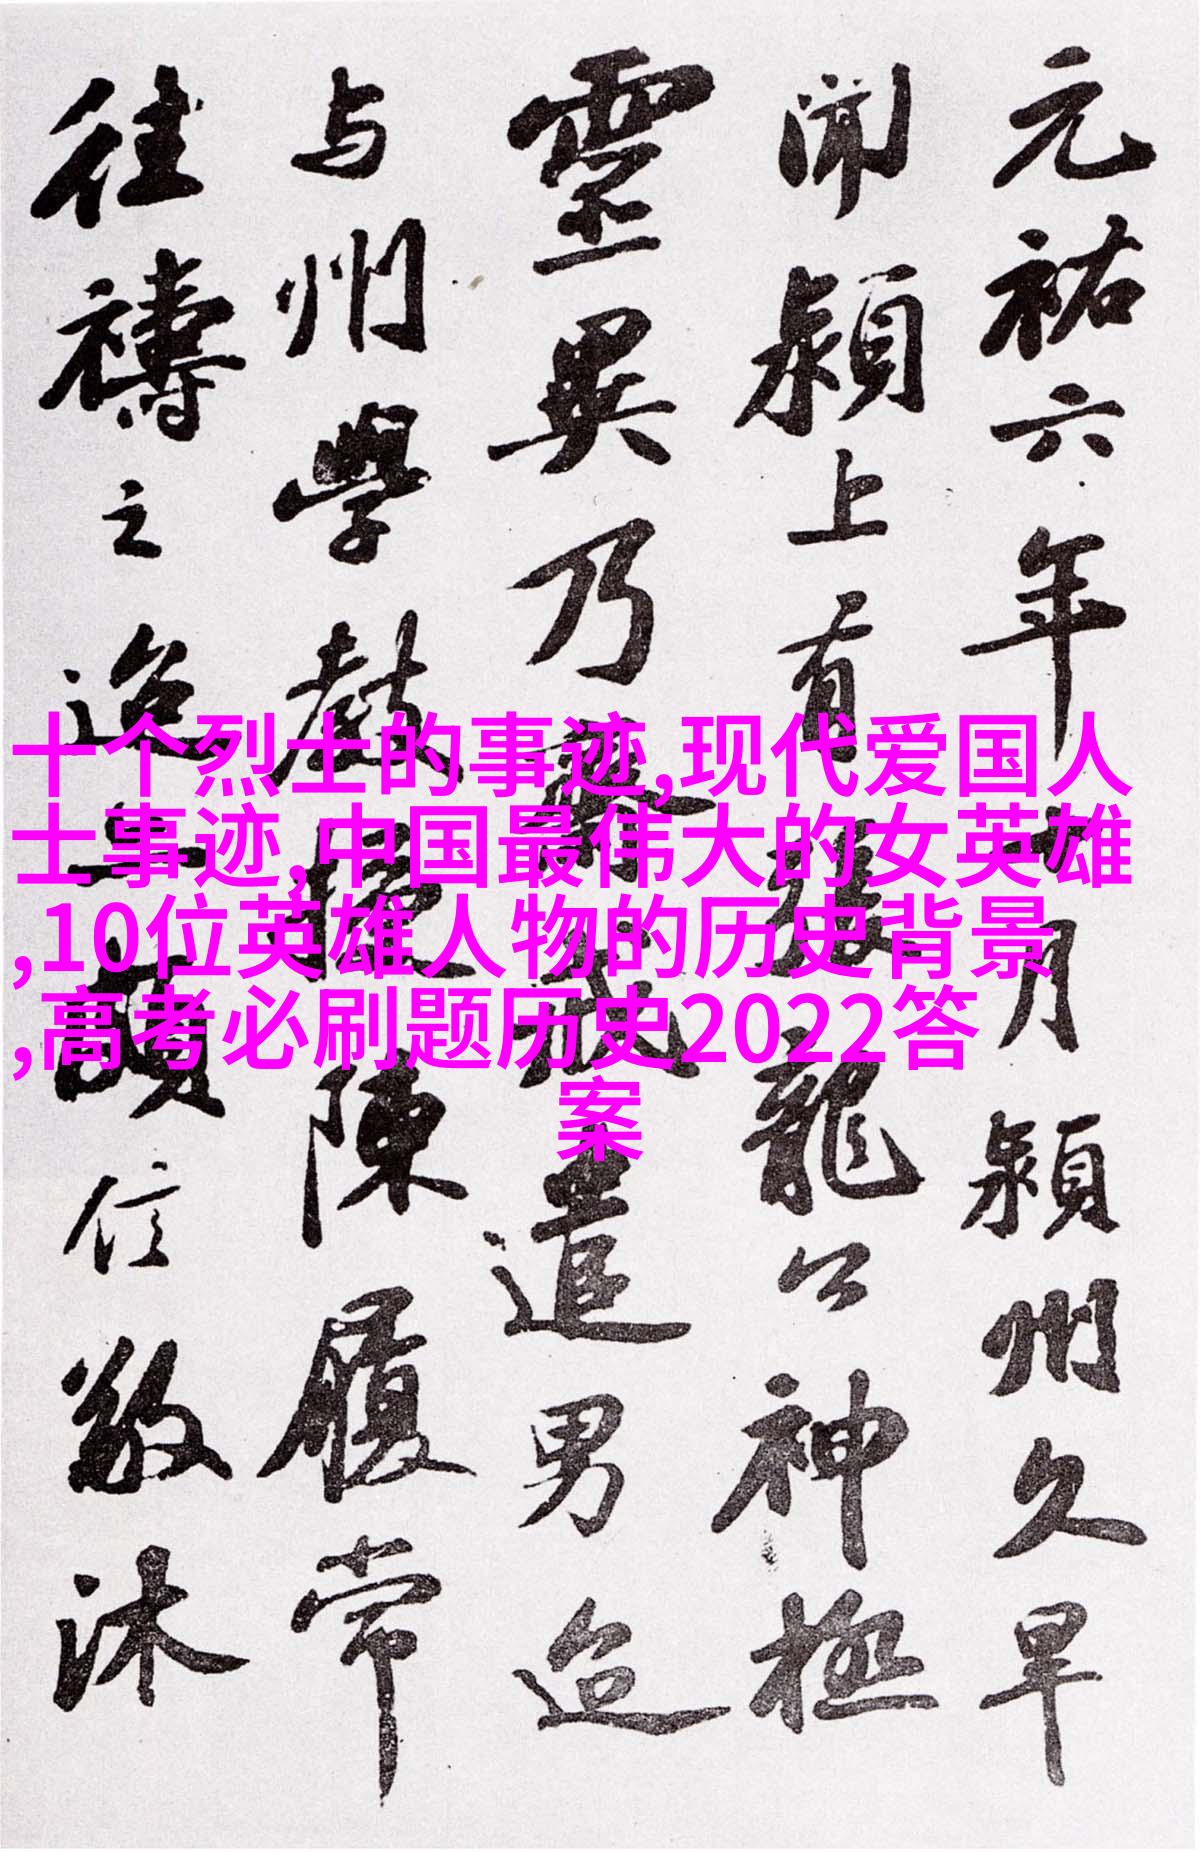 元祐六年十月潁州久旱
聞潁上有張龍公神極
靈異乃齋戒遣男迨
与州學教授陳履常
往禱之迨亦頗信敬沐
十个烈士的事迹,现代爱国人
士事迹,中国最伟大的女英雄
,10位英雄人物的历史背景
,高考必刷题历史2022答
案